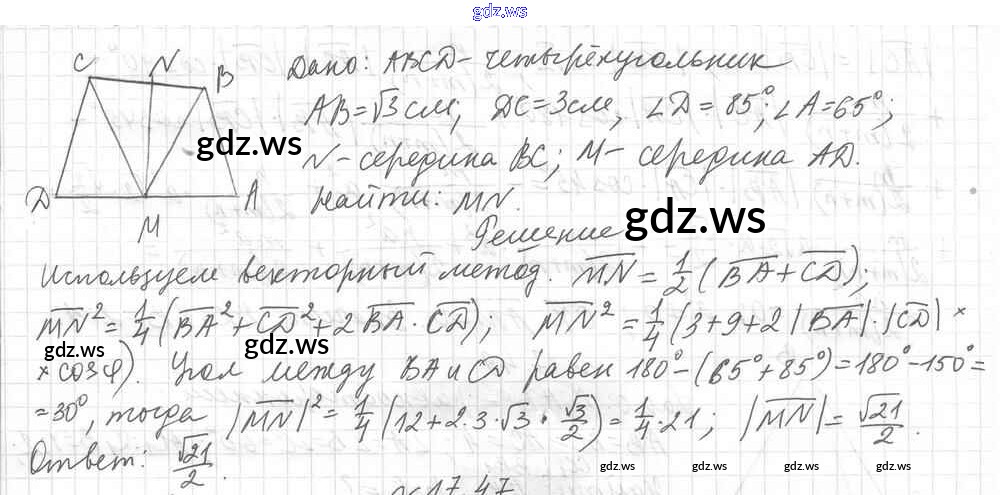 gdz.ws
C N B
D M A
Дано: ABCD - четырёхугольник
AB = √3 см; DC = 3 см, ∠D = 85°; ∠A = 65°;
gdz.ws
N - середина BC; M - середина AD.
Найти: MN.
gdz.ws
Решение
Используем векторный метод. MN = 1/2 (BA + CD);
MN² = 1/4 (BA² + CD² + 2 BA · CD); MN² = 1/4 (3 + 9 + 2 |BA| · |CD| ×
gdz.ws gdz.ws
× cos φ). Угол между BA и CD равен 180° - (65° + 85°) = 180° - 150° =
= 30°, тогда |MN|² = 1/4 (12 + 2 · 3 · √3 · √3/2) = 1/4 · 21; |MN| = √21/2.
Ответ: √21/2.
gdz.ws gdz.ws gdz.ws gdz.ws
17.47